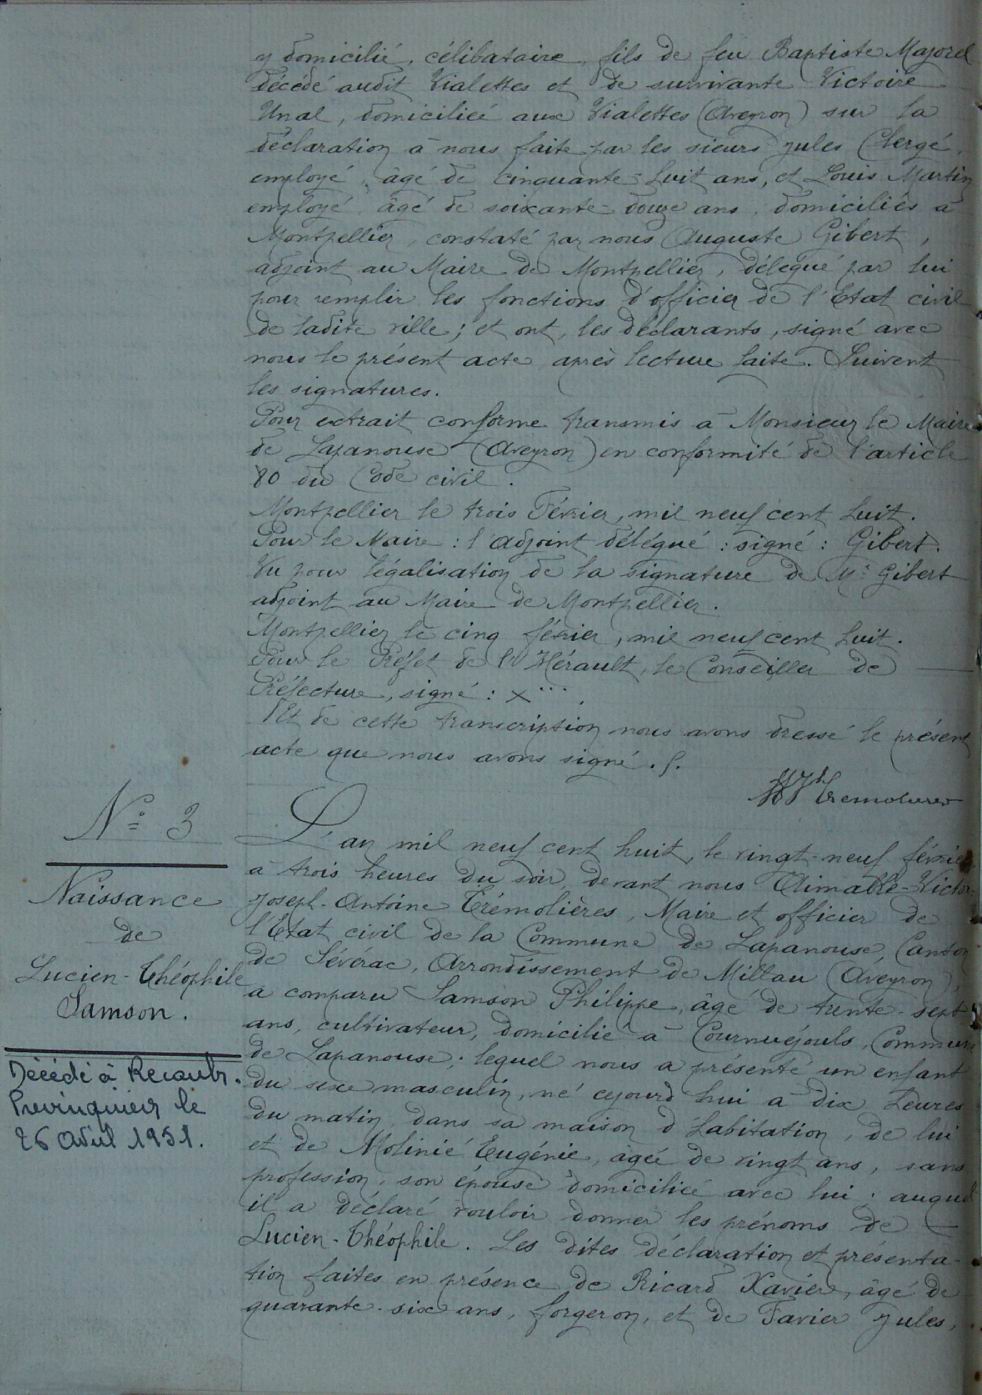 y domicilié, célibataire, fils de feu Baptiste Majorel
décédé audit Vialettes et de survivante Victoire
Unal, domiciliée aux Vialettes (Aveyron) sur la
déclaration à nous faite par les sieurs Jules Clergé,
employé, âgé de cinquante-huit ans, et Louis Martin
employé, âgé de soixante-douze ans, domiciliés à
Montpellier, constaté par nous Auguste Gibert,
adjoint au Maire de Montpellier, délégué par lui
pour remplir les fonctions d'officier de l'Etat civil
de ladite ville; et ont, les déclarants, signé avec
nous le présent acte après lecture faite. Suivent
les signatures.
Pour extrait conforme transmis à Monsieur le Maire
de Lapanouse (Aveyron) en conformité de l'article
80 du Code civil.
Montpellier le trois Février, mil neuf cent huit.
Pour le Maire : l'adjoint délégué : signé : Gibert.
Vu pour légalisation de la signature de Mr Gibert
adjoint au Maire de Montpellier.
Montpellier le cinq février, mil neuf cent huit.
Pour le Préfet de l'Hérault, le Conseiller de
Préfecture, signé : X...
Et de cette transcription nous avons dressé le présent
acte que nous avons signé. /.
Trémolières
N° 3
Naissance
de
Lucien-Théophile
Samson.
Décédé à
le
26 Avril 1951.
L'an mil neuf cent huit, le vingt-neuf février
à trois heures du soir devant nous Aimable-Victor
Joseph-Antoine Trémolières, Maire et officier de
l'Etat civil de la Commune de Lapanouse, Canton
de Sévérac, Arrondissement de Millau (Aveyron),
a comparu Samson Philippe, âgé de trente-sept
ans, cultivateur, domicilié à Cournuéjouls, Commune
de Lapanouse; lequel nous a présenté un enfant
du sexe masculin, né cejourd'hui à dix heures
du matin, dans sa maison d'habitation, de lui
et de Molinié Eugénie, âgée de vingt ans, sans
profession, son épouse domiciliée avec lui; auquel
il a déclaré vouloir donner les prénoms de
Lucien-Théophile. Les dites déclaration et présenta-
tion faites en présence de Ricard Xavier, âgé de
quarante-six ans, forgeron, et de Favier Jules,